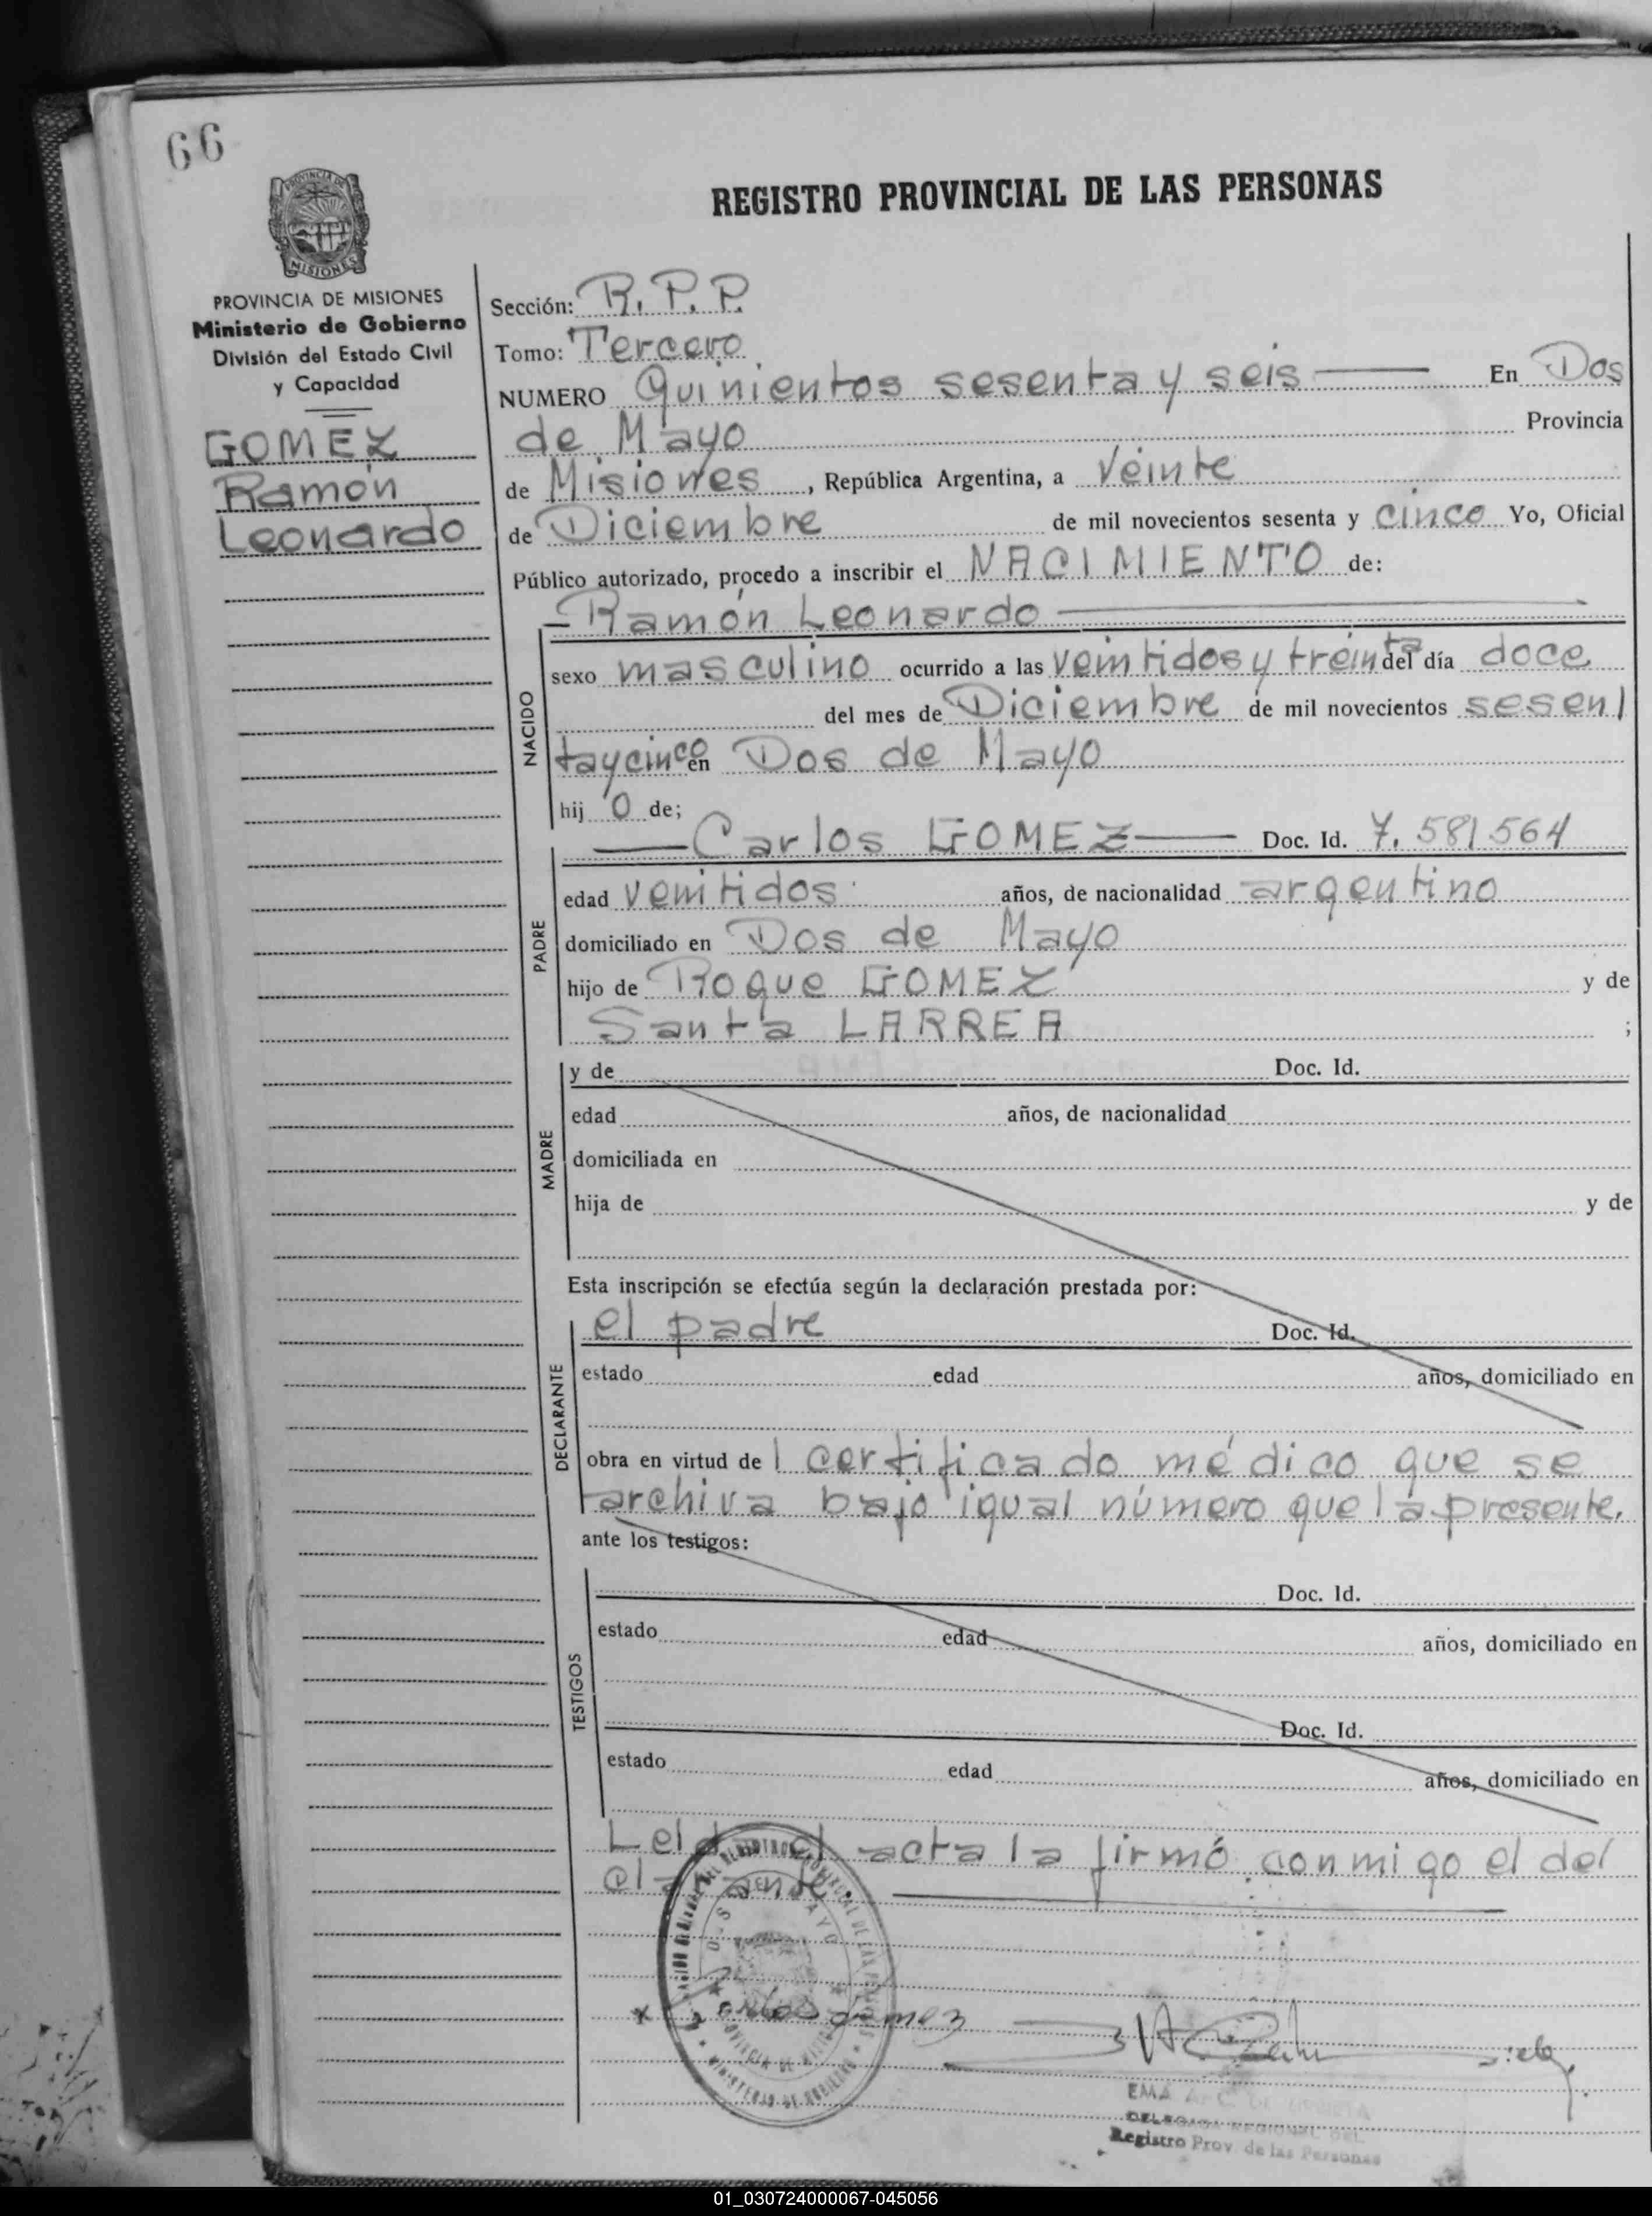 66
PROVINCIA DE
MISIONES
REGISTRO PROVINCIAL DE LAS PERSONAS
PROVINCIA DE MISIONES
Ministerio de Gobierno
División del Estado Civil
y Capacidad
GOMEZ
Ramón
Leonardo
Sección: R.P.P.
Tomo: Tercero
NUMERO Quinientos sesenta y seis En Dos
de Mayo Provincia
de Misiones, República Argentina, a Veinte
de Diciembre de mil novecientos sesenta y cinco Yo, Oficial
Público autorizado, procedo a inscribir el NACIMIENTO de:
Ramón Leonardo
NACIDO
sexo masculino ocurrido a las veintidos y treinta del día doce
del mes de Diciembre de mil novecientos sesen
taycinco en Dos de Mayo
hij o de;
PADRE
Carlos GOMEZ Doc. Id. 7.581564
edad venitidos años, de nacionalidad argentino
domiciliado en Dos de Mayo
hijo de Roque GOMEZ y de
Santa LARREA ;
MADRE
y de Doc. Id.
edad años, de nacionalidad
domiciliada en
hija de y de
Esta inscripción se efectúa según la declaración prestada por:
DECLARANTE
el padre Doc. Id.
estado edad años, domiciliado en
obra en virtud de l certificado médico que se
archiva bajo igual número que la presente.
ante los testigos:
TESTIGOS
Doc. Id.
estado edad años, domiciliado en
Doc. Id.
estado edad años, domiciliado en
Leida el acta la firmó conmigo el del
clarante
x Carlos Gomez
EMA
REGIONAL DEL
Registro Prov. de las Personas
01_030724000067-045056